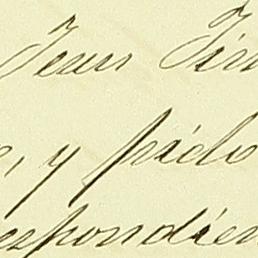 Jean Fir
, y pido
espondien